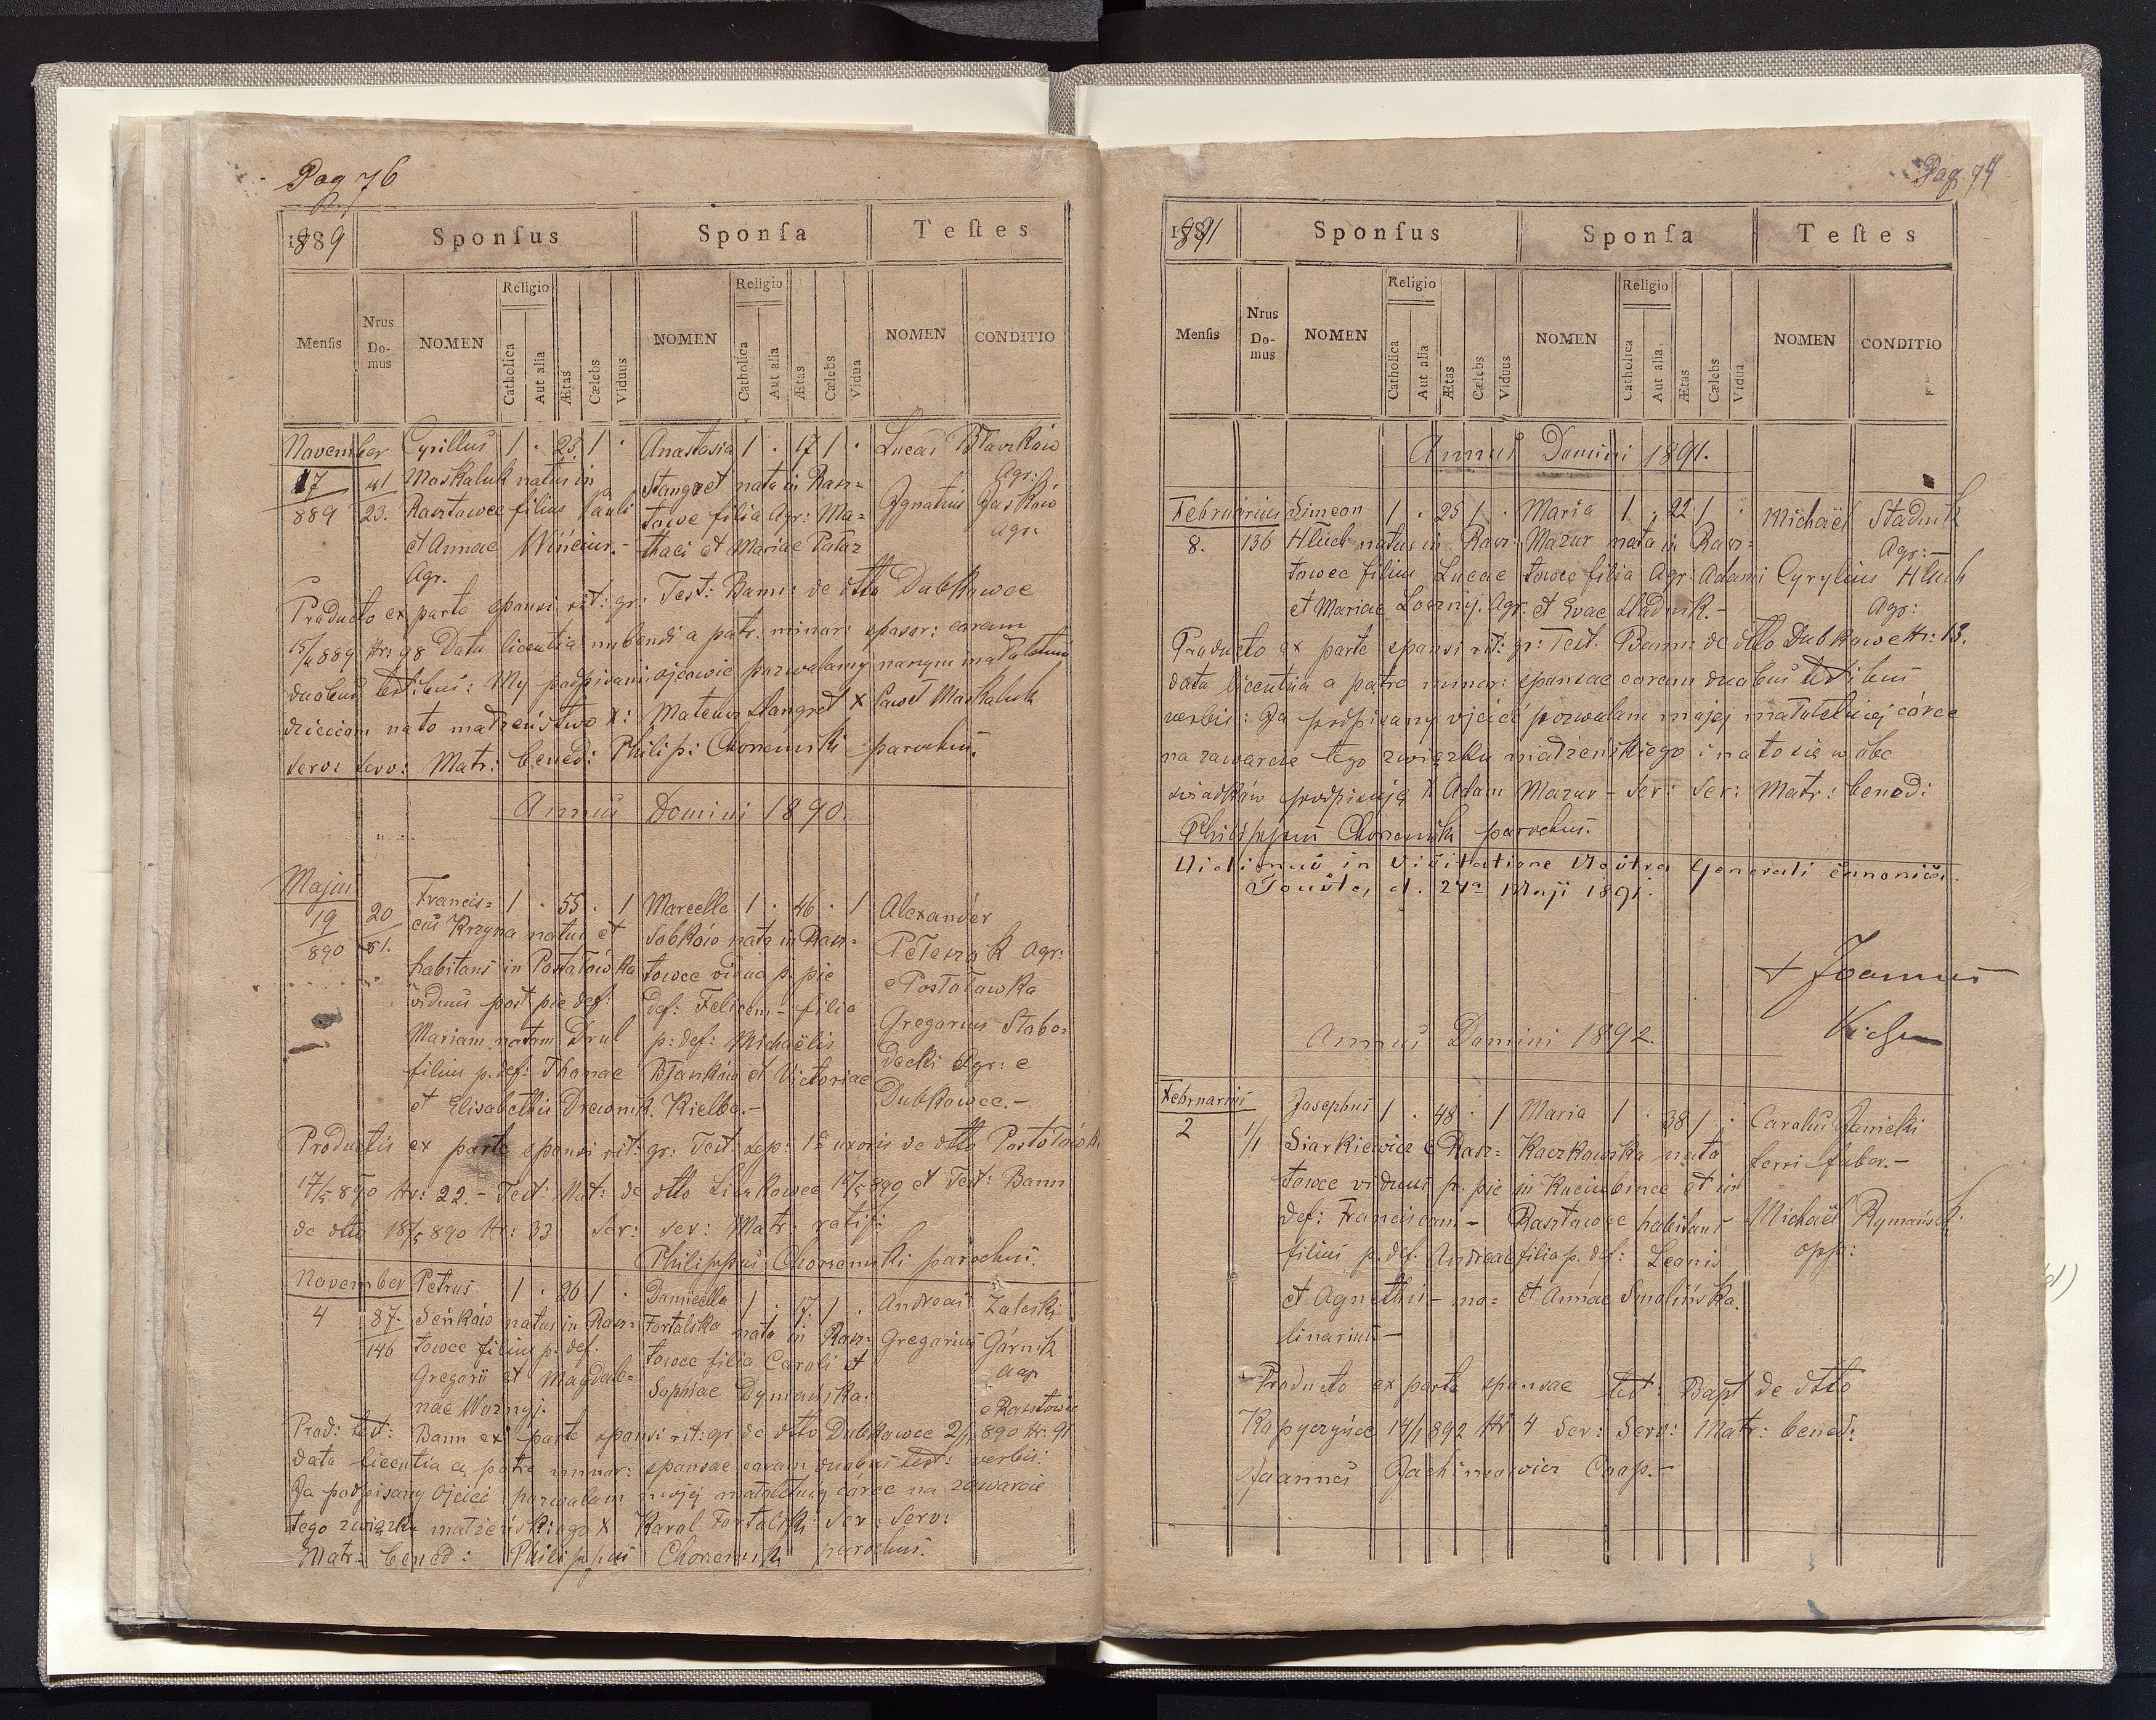 Pag 76
1889 Sponſus Sponſa Teſtes
Menſis Nrus Domus NOMEN Religio Catholica Aut alia Ætas Cœlebs Viduus NOMEN Religio Catholica Aut alia Ætas Cœlebs Vidua NOMEN CONDITIO
November Cyrillus 1 . 23 1 . Anastasia 1 . 17 1 . Lucas
17 41 Moskaluk natus in Stangret nata in Rasz= Agr:
889 23. Rasztowce filius Pauli towce filia Agr: Ma= Ignatius Jaśków
et Annae thaei et Mariae agr.
Agr.
Producto ex parte sponsi rit: gr: Test: Bann: de dtto Dubkowce
Nr: 98 Data licentia nubendi a patr: minor: sposor: coram
duobus testibus: My podpisani ojcowie pozwalamy naszym małoletnim
dzieciom na to małżeństwo X: Mateusz Stangret X Paweł Moskaluk
Servs servs: Matr: bened: Philip: Chorzemski parochus.
Annus Domini 1890.
Majus Francis= 1 . 55 . 1 Marcella 1 . 46 . 1 Alexander
19 20 cus Krzyna natus et Sobków nata in Rasz=
890 51. habitans in Postałówka towce vidua p. pie Agr:
viduus post pie def: def: Felicem - filia e Postałówka
Mariam natam Drul p: def: Michaëlis Gregorius Słobo=
filius p. def: Thomae et Victoriae decki Agr: e
et Elisabethis Drewnik. Kiełba.- Dubkowce.-
Productis ex parte sponsi rit: gr: Test: sep: 1ae uxoris de dtto
17/5 890 Nr: 22.- Test: Nat: de dtto 890 et Test: Bann
de dtto 18/5 890 Nr: 33 Ser: ser: Matr: ratif:
Philippus Chorzemski parochus.
November Petrus 1 . 26 1 . Daniella 1 . 17 1 . Andreas Zaleski
4 87. Seńków natus in Rasz= Fortalska nata in Rasz= Gregorius Górnik
146 towce filius p. def. towce filia Caroli et
Gregorii et Magdale= Sophiae e Rasztowce
nae
Prod: test: Bann ex parte sponsi rit: gr de dtto Dubkowce 890 Nr: 91
data licentia a patre minor: sponsae coram duobus test: verbis:
Ja podpisany Ojciec pozwalam mojej małoletniej córce na zawarcie
tego związku małżeńskiego X Karol Fortalski Ser: Serv:
Matr: bened: Philippus Chorzemski parochus.
Pag. 77
1891 Sponſus Sponſa Teſtes
Menſis Nrus Domus NOMEN Religio Catholica Aut alia Ætas Cœlebs Viduus NOMEN Religio Catholica Aut alia Ætas Cœlebs Vidua NOMEN CONDITIO
Annus Domini 1891.
Februarius Simeon 1 . 25 1 . Maria 1 . 22 1 . Michaël Stadnik
8. 136 Hłuch natus in Rasz: Mazur nata in Rasz= Agr:-
towce filius Lucae towce filia Agr: Adami Cyrylius Hłuch
et Mariae Agr: et Evae Stadnik.- Agr:
Producto ex parte sponsi rit: gr: Test. Bann: de dtto Dubkowce Nr: 13.
data licentia a patre minor: sponsae coram duobus testibus
verbis: Ja podpisany ojciec pozwalam mojej małoletniej córce
na zawarcie tego związku małżeńskiego i na to się w obec
świadków podpisuję X Adam Mazur - Ser: Ser: Matr: bened:
Philippus Chorzemski parochus.
Vidimus in Visitatione Nostra Generali Canonica.
Touste, d. 27a Maji 1891.
+ Joannes
Annus Domini 1892.
Februarius Josephus 1 . 48 . 1 Maria 1 . 38 1 . Carolus Janicki
2 1/1 Siarkiewicz e Rasz= Kaczkowska nata ferri faber.-
towce viduus p. pie in Kociubińce et in
def: Franciscam - Rasztowce habitans Michaël
filius p. def. Andreae filia p. def: Leonis opp:
et Agnethis - mo= et Annae Smolińska.
linarius -
Producto ex parte sponsae test: Bapt de dtto
14/1 892 Nr 4 Ser: Serv: Matr: bened:
Joannes Jachimowicz Coop.-